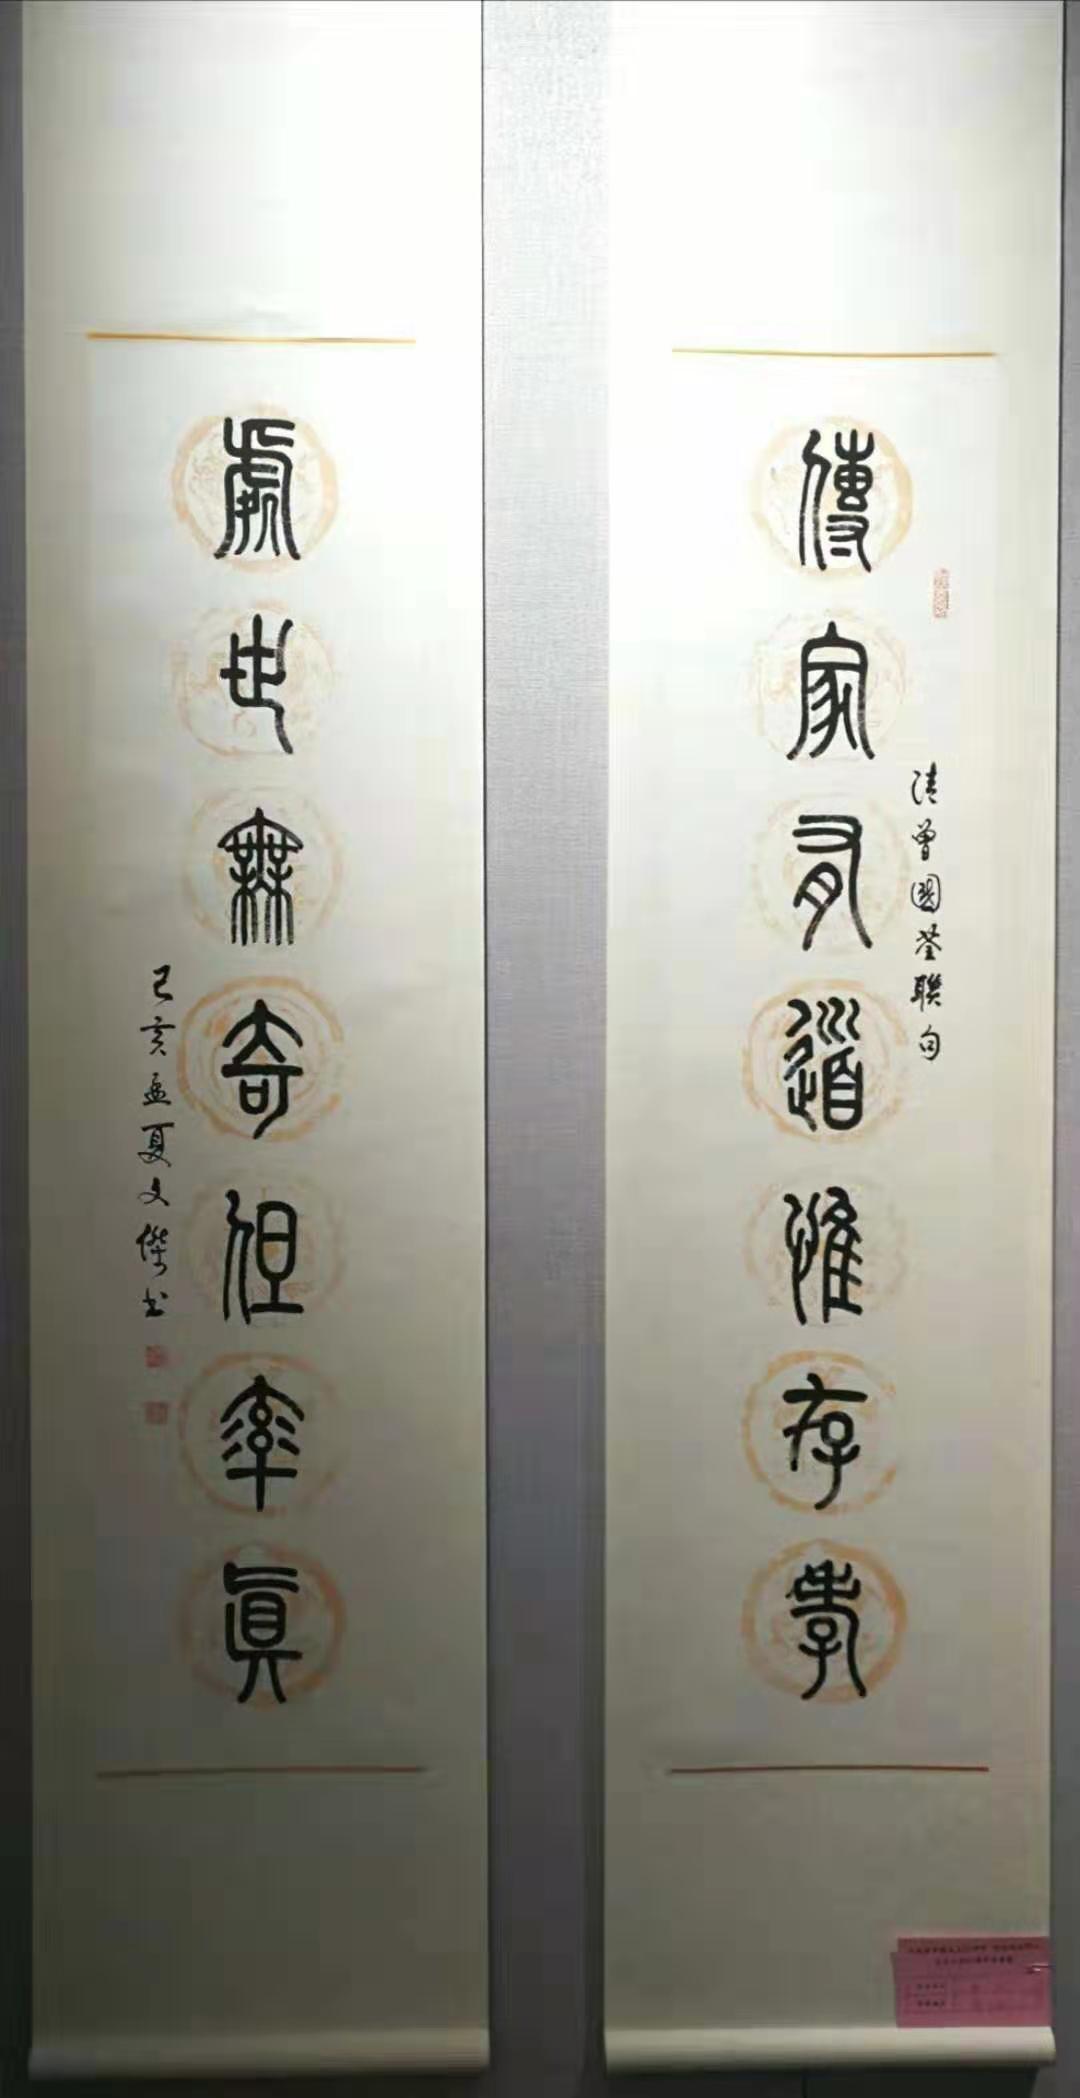 傳家有道惟存孝
清曾國荃聯句
處世無奇但率真
己亥孟夏文傑書